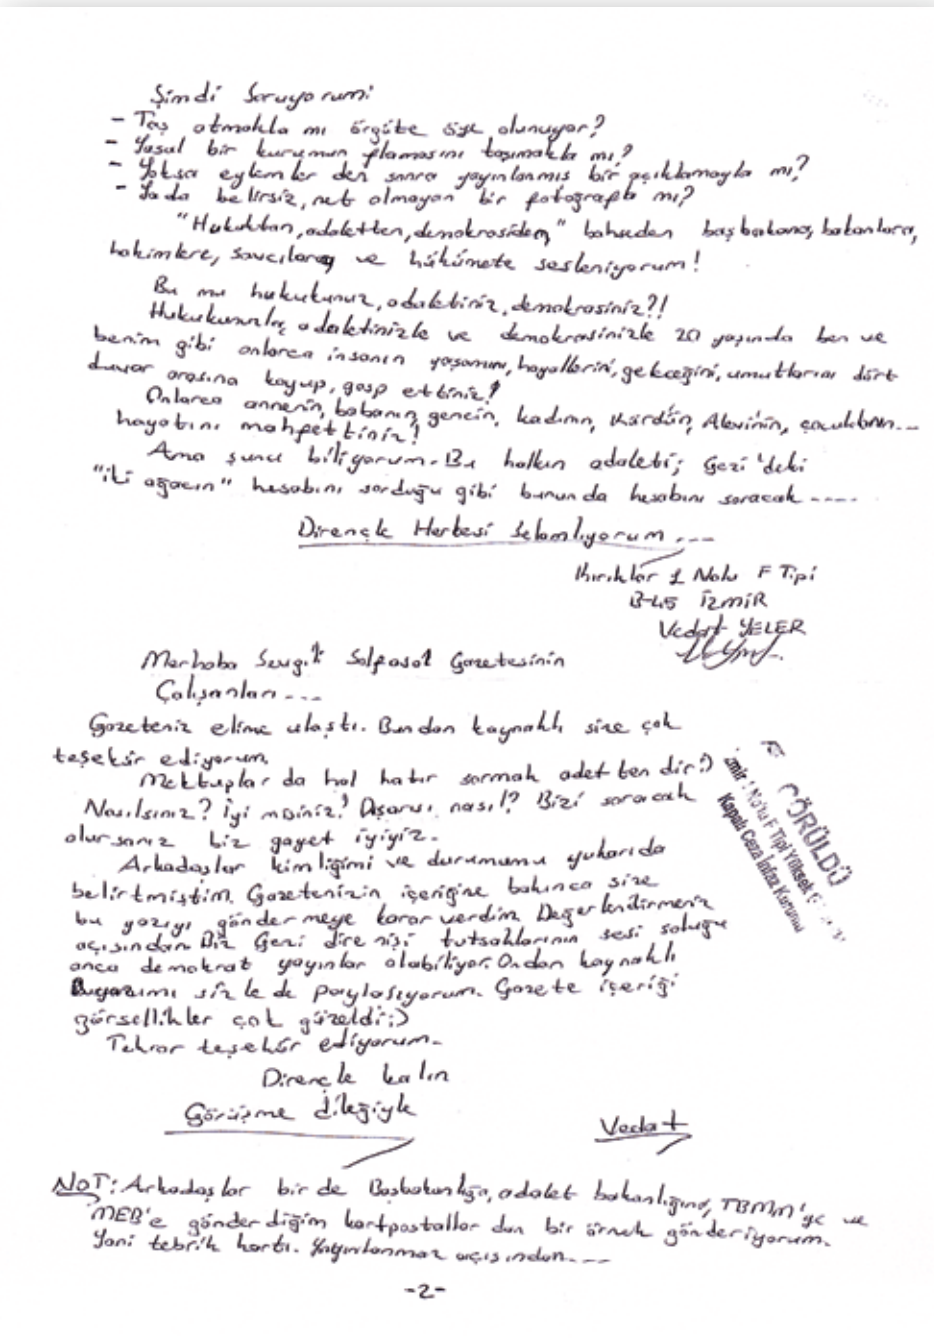 Şimdi Soruyorum:
- Taş atmakla mı örgüte üye olunuyor?
- Yasal bir kurumun flamasını taşımakla mı?
- Yoksa eylemler den sonra yayınlanmış bir açıklamayla mı?
- Ya da belirsiz, net olmayan bir fotoğrafla mı?
"Hukuktan, adaletten, demokrasiden" bahseden başbakana, bakanlara,
hakimlere, savcılara ve hükümete sesleniyorum!
Bu mu hukukunuz, adaletiniz, demokrasiniz?!
Hukukunuzla, adaletinizle ve demokrasinizle 20 yaşında ben ve
benim gibi onlarca insanın yaşamını, hayallerini, geleceğini, umutlarını dört
duvar arasına koyup, gasp ettiniz!
Onlarca annenin, babanın, gencin, kadının, Kürdün, Alevinin, çocukların...
hayatını mahpettiniz!
Ama şunu biliyorum. Bu halkın adaleti; Gezi'deki
"iki ağacın" hesabını sorduğu gibi bunun da hesabını soracak.....
Dirençle Herkesi Selamlıyorum...
Kırıklar 1 Nolu F Tipi
B-45 İZMİR
Vedat YELER
Merhaba Sevgili Solfasol Gazetesinin
Çalışanları...
Gazeteniz elime ulaştı. Bundan kaynaklı size çok
teşekür ediyorum.
Mektuplar da hal hatır sormak adettendir:)
Nasılsınız? İyi misiniz? Dışarısı nasıl? Bizi soracak
olursanız biz gayet iyiyiz.
Arkadaşlar kimliğimi ve durumumu yukarıda
belirtmiştim. Gazetenizin içeriğine bakınca size
bu yazıyı göndermeye karar verdim. Değerlendirmeniz
açısından. Biz Gezi direnişi tutsaklarının sesi soluğu
anca demokrat yayınlar olabiliyor. Ondan kaynaklı
Bu yazımı sizle de paylaşıyorum. Gazete içeriği
görsellikler çok güzeldi:)
Tekrar teşekür ediyorum.
Dirençle kalın
Görüşme dileğiyle
Vedat
GÖRÜLDÜ
İzmir 1 No'lu F Tipi Yüksek
Kapalı Ceza İnfaz Kurumu
NOT: Arkadaşlar bir de Başbakanlığa, adalet bakanlığına, TBMM'ye ve
MEB'e gönderdiğim kartpostallar dan bir örnek gönderiyorum.
Yani tebrik kartı. Yayınlanması açısından....
-2-